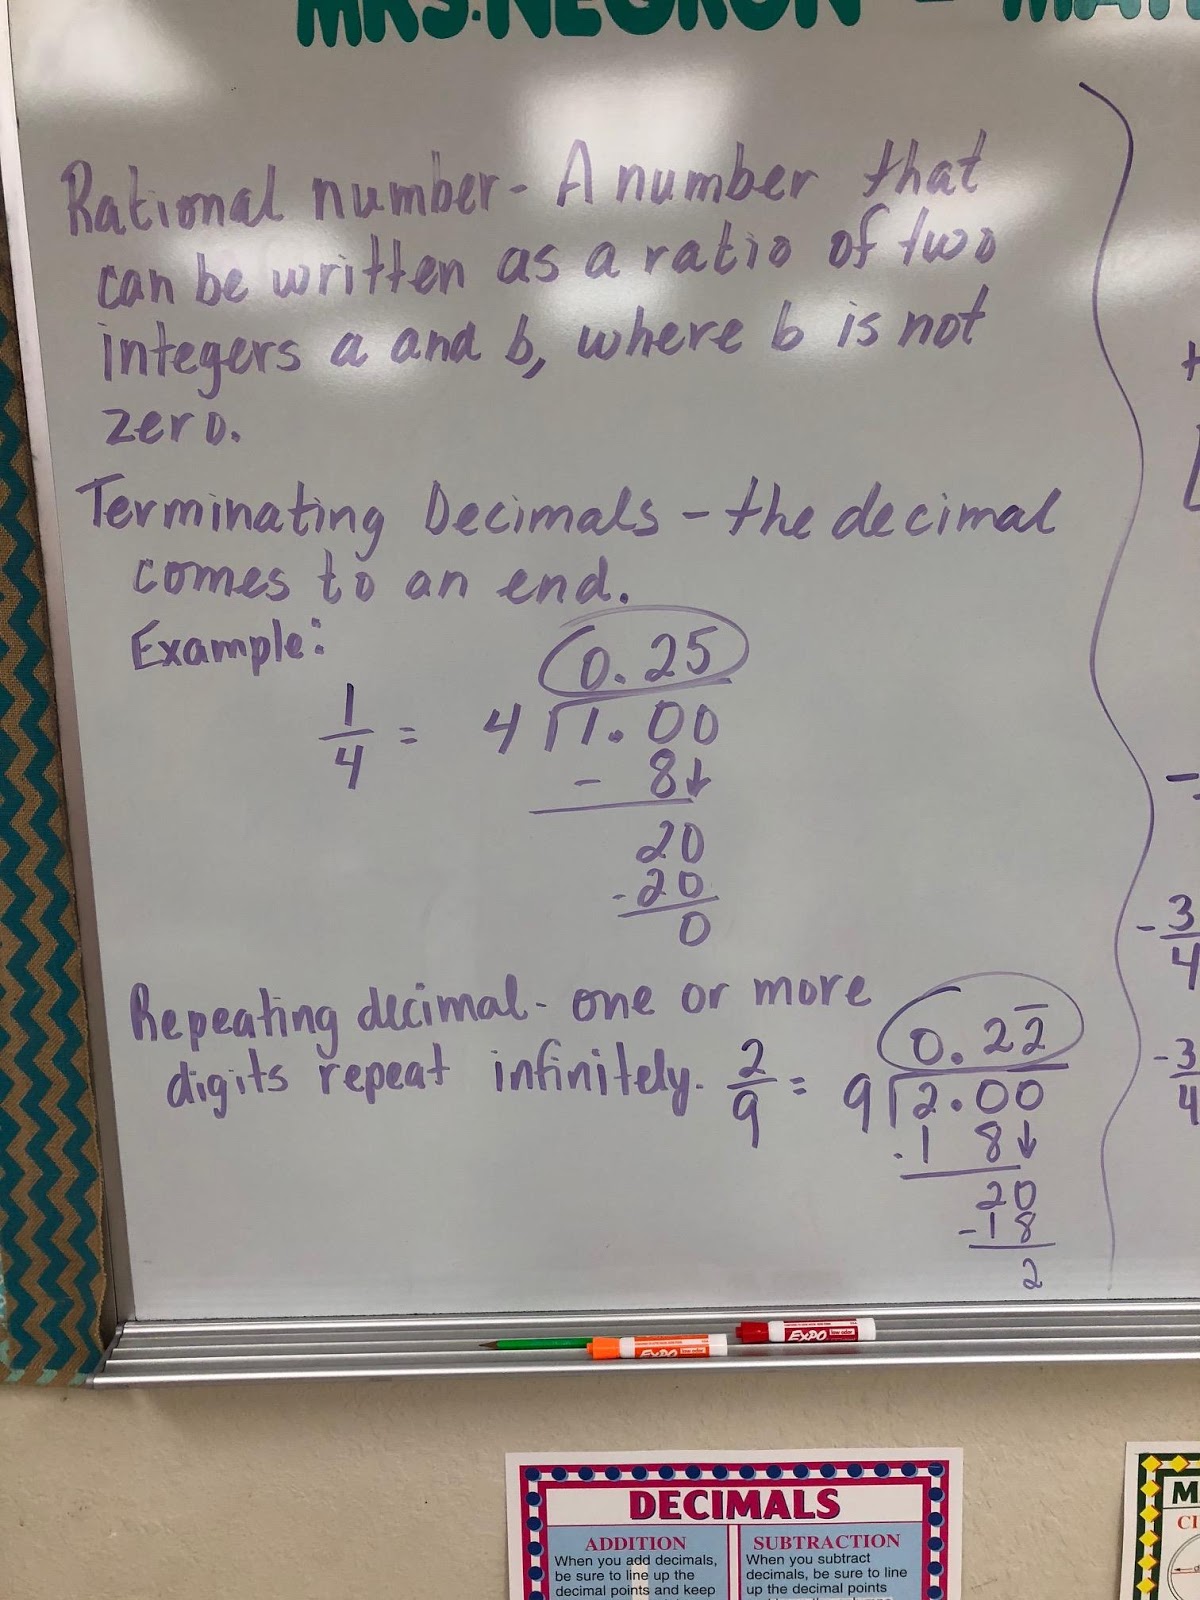 MRS. NEGRON - MATH
Rational number - A number that
can be written as a ratio of two
integers a and b, where b is not
zero.
Terminating Decimals - the decimal
comes to an end.
Example:
0.25
1/4 = 4⟌1.00
- 8↓
20
-20
0
Repeating decimal - one or more
digits repeat infinitely.
0.22̅
2/9 = 9⟌2.00
-1 8↓
20
-18
2
-3/4
-3/4
EXPO low odor
EXPO low odor
DECIMALS
ADDITION
When you add decimals,
be sure to line up the
decimal points and keep
SUBTRACTION
When you subtract
decimals, be sure to line
up the decimal points
M
CI